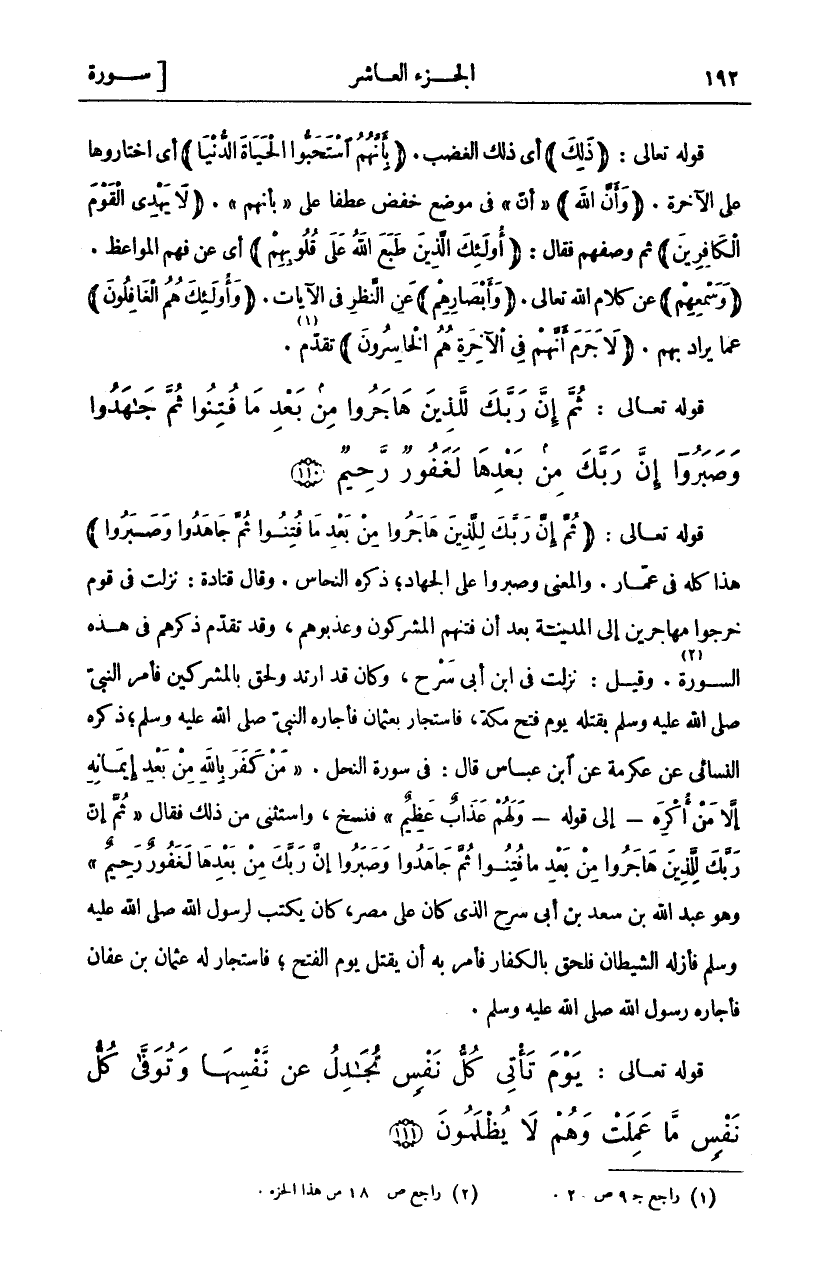 ١٩٢ الجـزء العـاشر [ ســورة
قوله تعالى : ﴿ ذَٰلِكَ ﴾ أى ذلك الغضب . ﴿ بِأَنَّهُمُ ٱسْتَحَبُّوا الْحَيَاةَ الدُّنْيَا ﴾ أى اختاروها
على الآخرة . ﴿ وَأَنَّ اللهَ ﴾ « أنّ » فى موضع خفض عطفا على « بأنهم » . ﴿ لَا يَهْدِى الْقَوْمَ
الْكَافِرِينَ ﴾ ثم وصفهم فقال : ﴿ أُولَئِكَ الَّذِينَ طَبَعَ اللهُ عَلَى قُلُوبِهِمْ ﴾ أى عن فهم المواعظ .
﴿ وَسَمْعِهِمْ ﴾ عن كلام الله تعالى . ﴿ وَأَبْصَارِهِمْ ﴾ عَنِ النَّظرِ فى الآيات . ﴿ وَأُولَئِكَ هُمُ الْغَافِلُونَ ﴾
عما يراد بهم . ﴿ لَا جَرَمَ أَنَّهُمْ فِى الْآخِرَةِ هُمُ الْخَاسِرُونَ ﴾ تقدّم (١) .
قوله تعـالى : ثُمَّ إِنَّ رَبَّكَ لِلَّذِينَ هَاجَرُوا مِنۢ بَعْدِ مَا فُتِنُوا ثُمَّ جَـٰهَدُوا
وَصَبَرُوٓا إِنَّ رَبَّكَ مِنۢ بَعْدِهَا لَغَفُورٌ رَّحِيمٌ ١١٠
قوله تعـالى : ﴿ ثُمَّ إِنَّ رَبَّكَ لِلَّذِينَ هَاجَرُوا مِنْ بَعْدِ مَا فُتِنُـوا ثُمَّ جَاهَدُوا وَصَـبَرُوا ﴾
هذا كله فى عمّـار . والمعنى وصبروا على الجهاد؛ ذكره النحاس . وقال قتادة : نزلت فى قوم
خرجوا مهاجرين إلى المدينـة بعد أن فتنهم المشركون وعذبوهم ، وقد تقدّم ذكرهم فى هـذه
السـورة (٢) . وقيـل : نزلت فى ابن أبى سَرْح ، وكان قد ارتد ولحق بالمشركين فأمر النبىّ
صلى الله عليه وسلم بقتله يوم فتح مكة ، فاستجار بعثمان فأجاره النبىّ صلى الله عليه وسلم؛ ذكره
النسائى عن عكرمة عن ٱبن عبـاس قال : فى سورة النحل . « مَنْ كَفَرَ بِاللهِ مِنْ بَعْدِ إِيمَـانِهِ
إِلَّا مَنْ أُكْرِهَ – إلى قوله – وَلَهُمْ عَذَابٌ عَظِيمٌ » فنسخ ، واستثنى من ذلك فقال « ثُمَّ إِنّ
رَبَّكَ لِلَّذِينَ هَاجَرُوا مِنْ بَعْدِ مَا فُتِنُـوا ثُمَّ جَاهَدُوا وَصَبَرُوا إِنَّ رَبَّكَ مِنْ بَعْدِهَا لَغَفُورٌ رَحِيمٌ »
وهو عبد الله بن سعد بن أبى سرح الذى كان على مصر، كان يكتب لرسول الله صلى الله عليه
وسلم فأزله الشيطان فلحق بالكفار فأمر به أن يقتل يوم الفتح ؛ فاستجار له عثمان بن عفان
فأجاره رسول الله صلى الله عليه وسلم .
قوله تعـالى : يَوْمَ تَأْتِى كُلُّ نَفْسٍ تُجَـٰدِلُ عَن نَّفْسِهَا وَتُوَفَّىٰ كُلُّ
نَفْسٍ مَّا عَمِلَتْ وَهُمْ لَا يُظْلَمُونَ ١١١
(١) راجع جـ ٩ ص ٢٠ . (٢) راجع ص ١٨ من هذا الجزء .